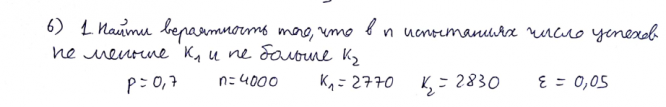 6) 1. Найти вероятность того, что в n испытаниях число успехов
не меньше K₁ и не больше K₂
p = 0,7 n = 4000 K₁ = 2770 K₂ = 2830 ε = 0,05